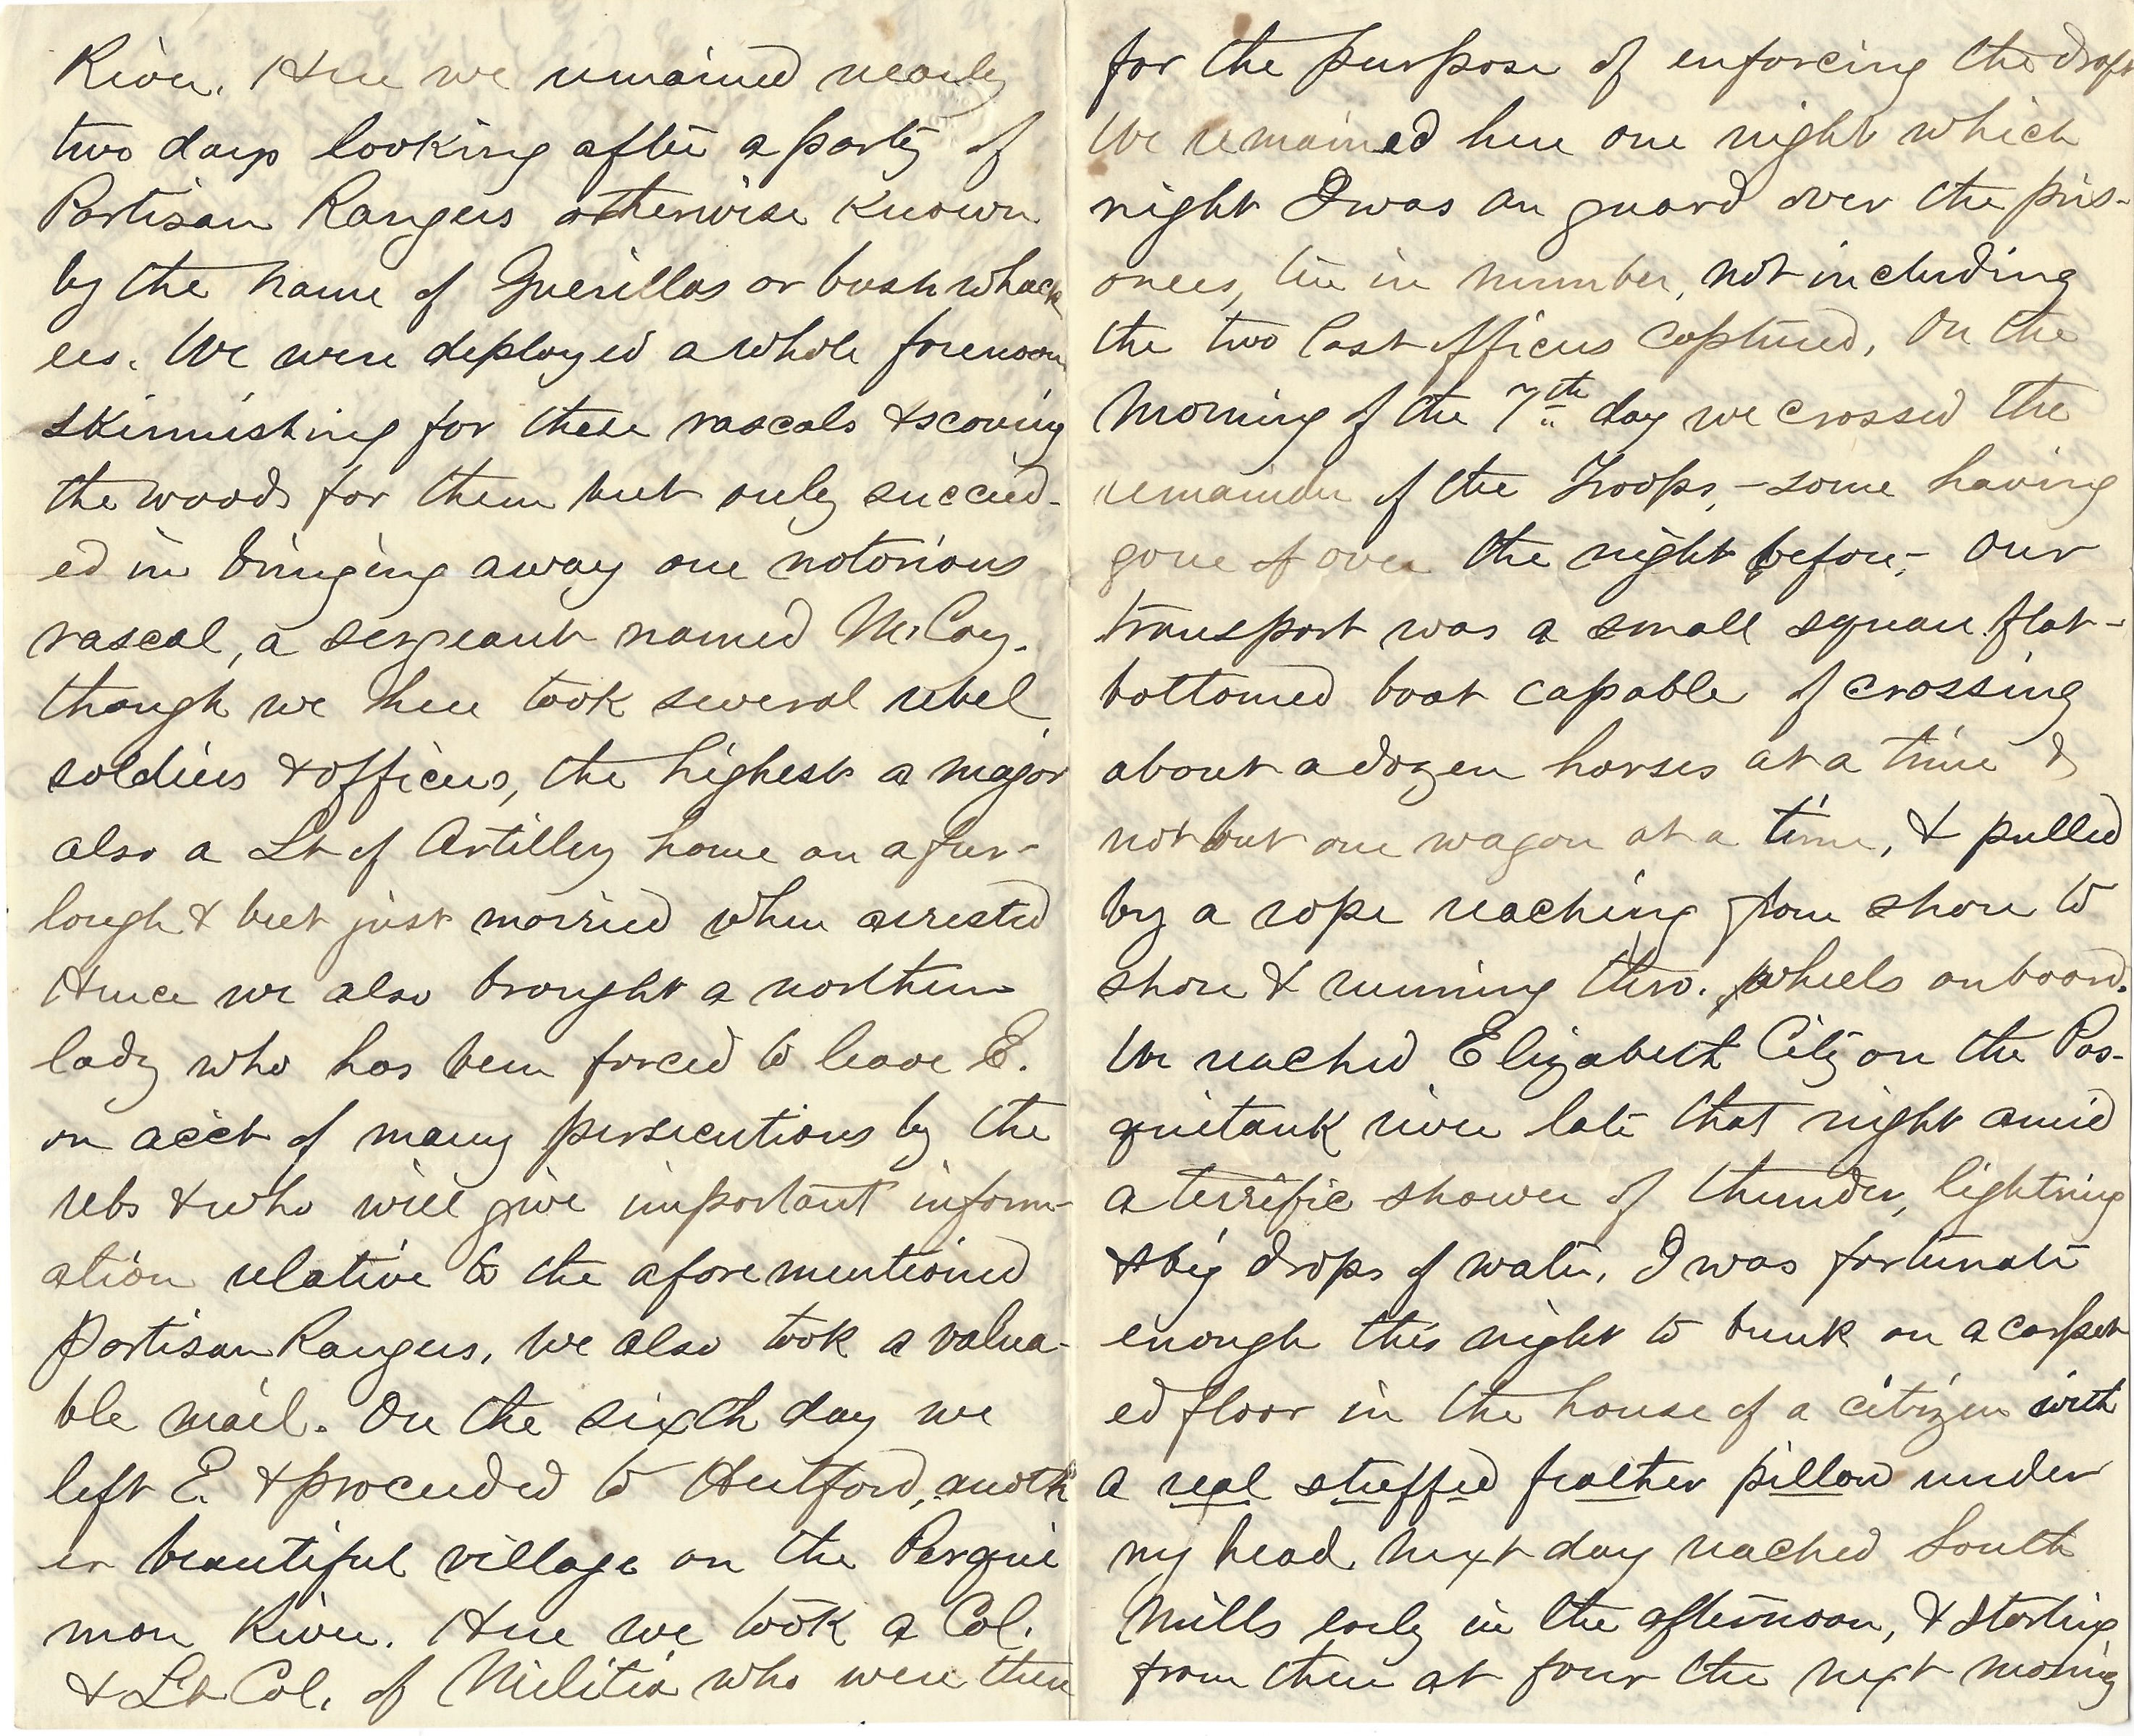 River. Here we remained nearly
two days looking after a party of
Partisan Rangers otherwise known
by the name of Guerillas or bushwhack
ers. We were deployed a whole forenoon
skirmishing for these rascals & scouring
the woods for them but only succeed-
ed in bringing away one notorious
rascal, a sergeant named McCoy.
though we here took several rebel
soldiers & officers, the highest a major
also a Lt of Artillery home on a fur-
lough & but just married when arrested
Hence we also brought a northern
lady who has been forced to leave E.
on acct of many persecutions by the
rebs & who will give important inform-
ation relative to the aforementioned
Partisan Rangers. We also took a valua-
ble mail. On the sixth day we
left E. & proceeded to Hertford, anoth
er beautiful village on the Perqui
mon River. Here we took a Col.
& Lt Col. of Militia who were there
for the purpose of enforcing the draft
We remained here one night which
night I was on guard over the pris-
oners, ten in number, not including
the two last officers captured. On the
morning of the 7th day we crossed the
remainder of the Troops, - some having
gone over the night before, - Our
transport was a small square flat-
bottomed boat capable of crossing
about a dozen horses at a time &
not but one wagon at a time, & pulled
by a rope reaching from shore to
shore & running thro. wheels on board.
We reached Elizabeth City on the Pas-
quitank river late that night amid
a terrific shower of thunder, lightning
& big drops of water. I was fortunate
enough this night to bunk on a carpet
ed floor in the house of a citizen with
a real stuffed feather pillow under
my head. Next day reached South
Mills early in the afternoon, & starting
from there at four the next morning